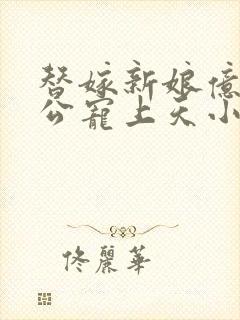 替嫁新娘億
公寵上天小
佟麗華